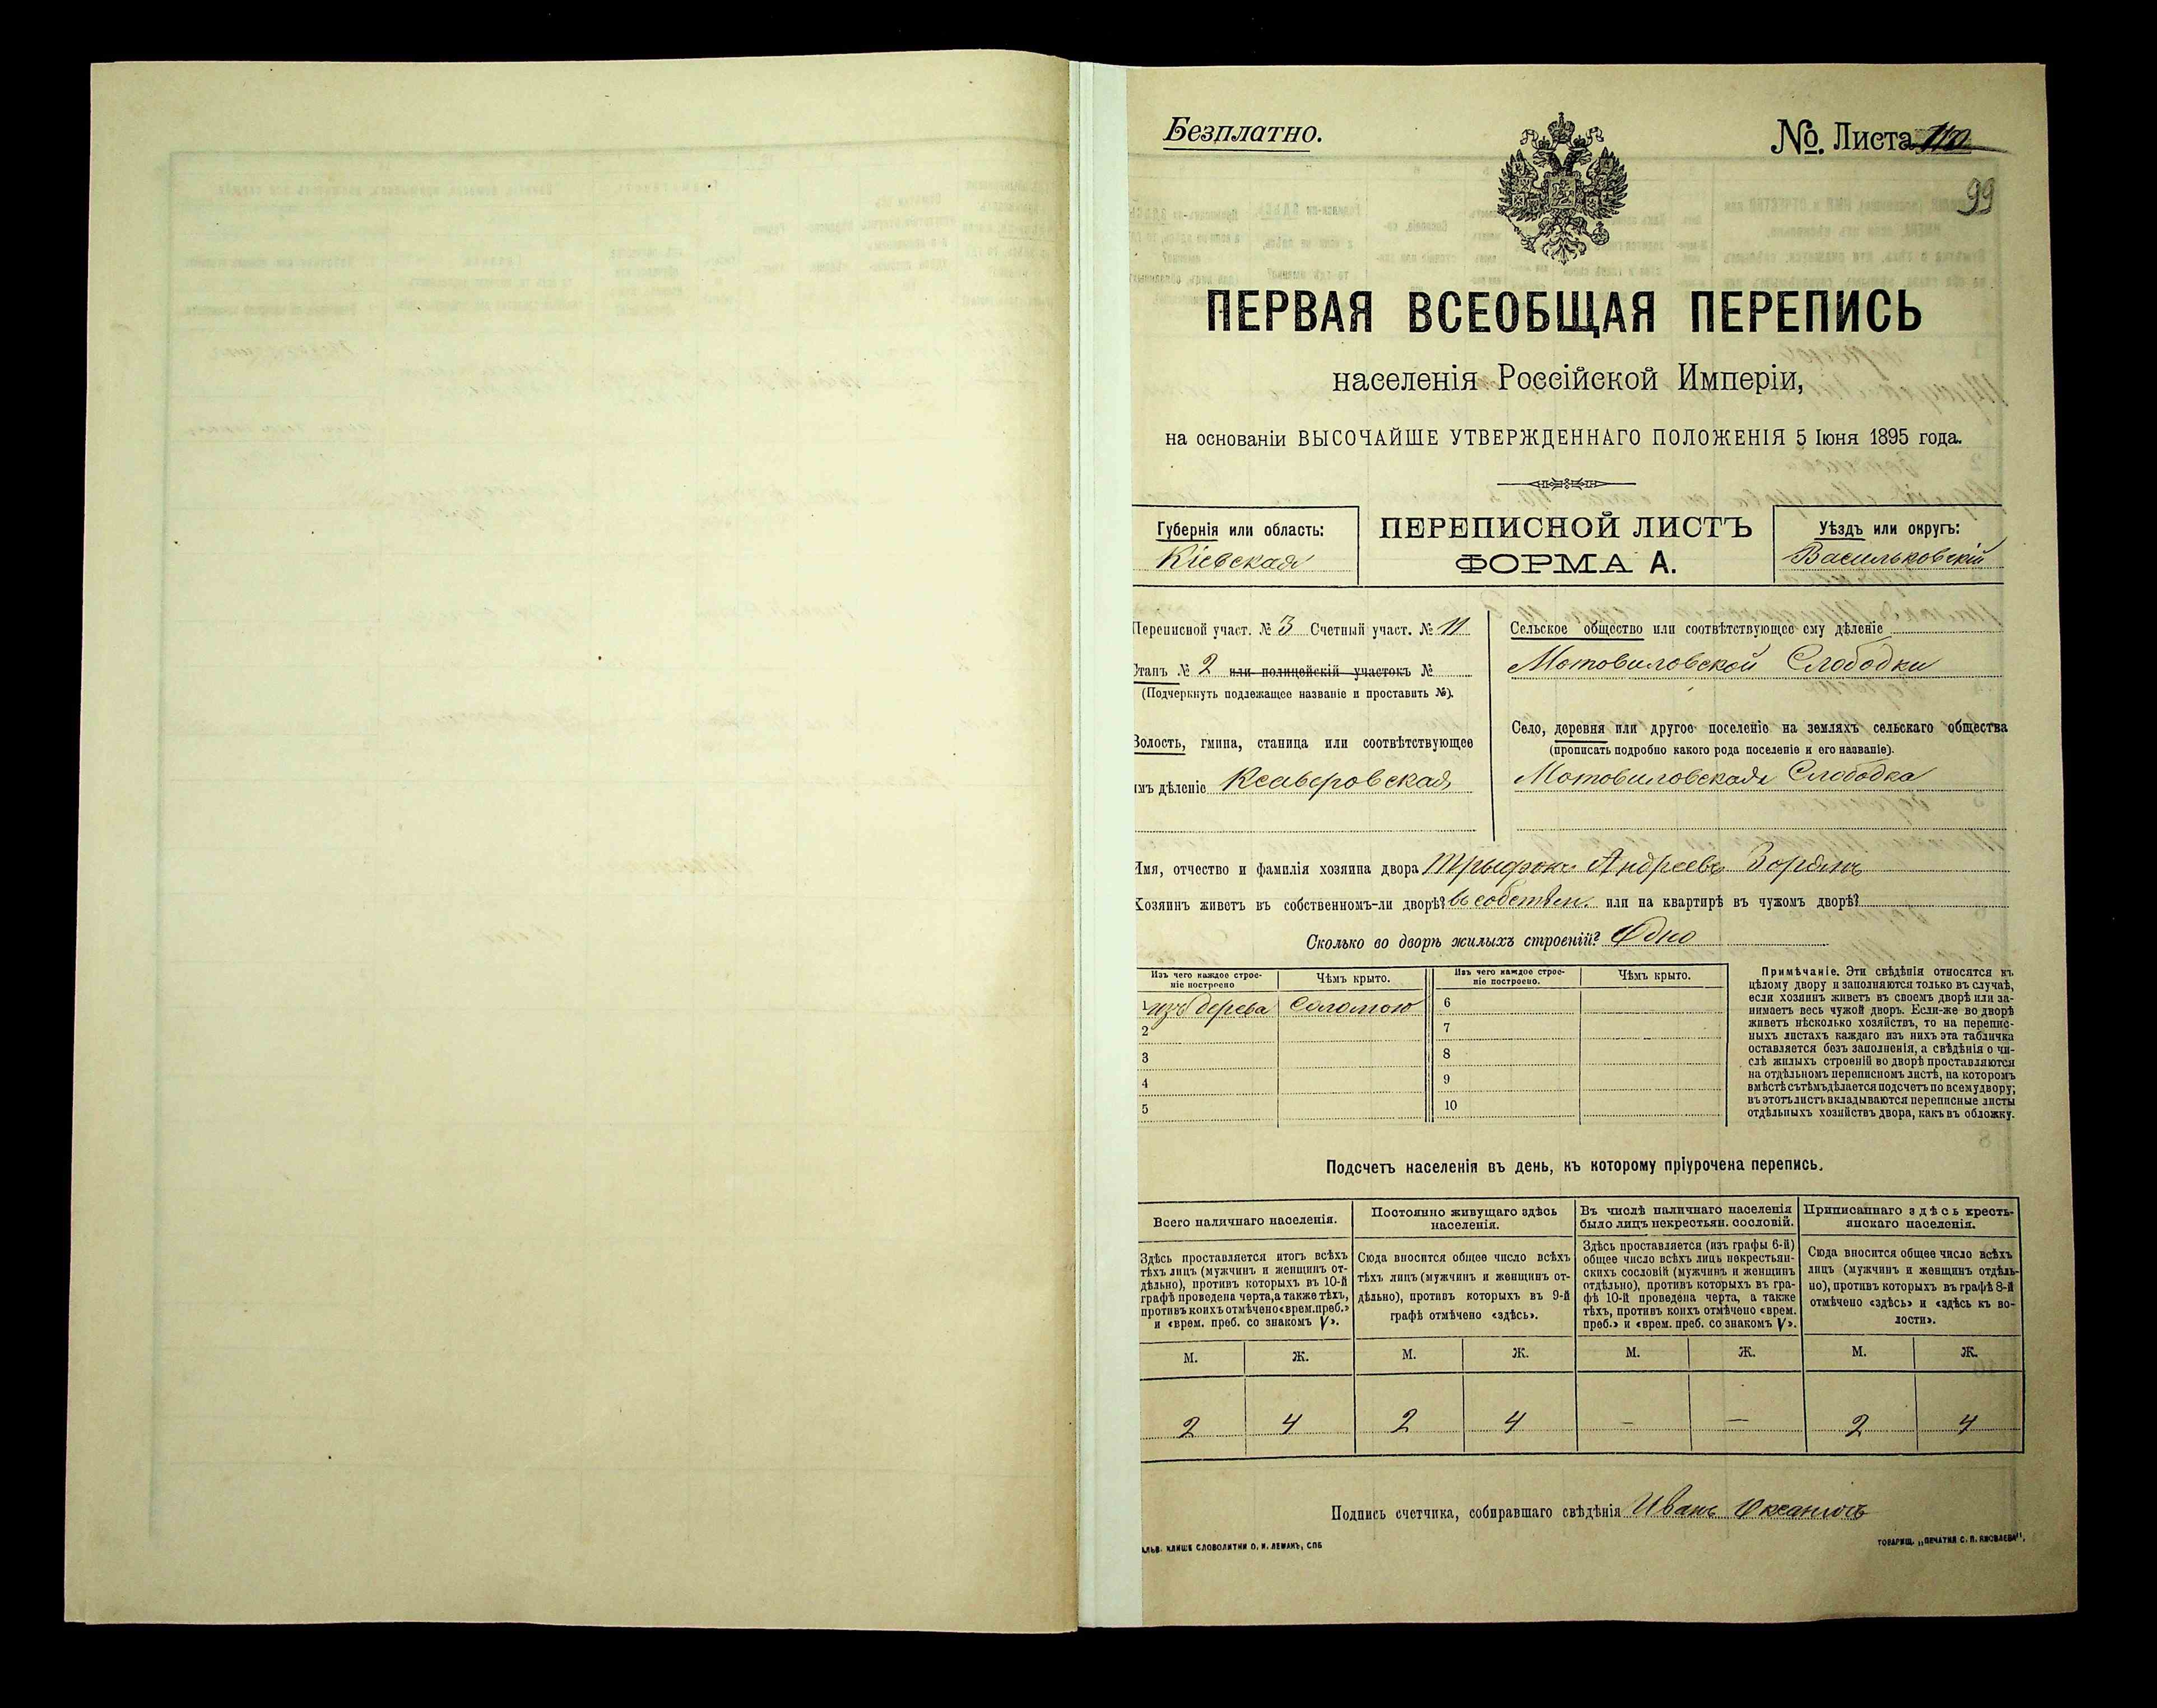 Безплатно.
No. Листа
99
ПЕРВАЯ ВСЕОБЩАЯ ПЕРЕПИСЬ
населенія Россійской Имперіи,
на основаніи ВЫСОЧАЙШЕ УТВЕРЖДЕННАГО ПОЛОЖЕНІЯ 5 Іюня 1895 года.
Губернія или область:
Кіевская
ПЕРЕПИСНОЙ ЛИСТЪ
ФОРМА А.
Уѣздъ или округъ:
Васильковскій
Переписной участ. № 3 Счетный участ. № 11
Станъ № 2 или полицейскій участокъ №
(Подчеркнуть подлежащее названіе и проставить №).
Волость, гмина, станица или соотвѣтствующее
имъ дѣленіе Ксаверовская
Сельское общество или соотвѣтствующее ему дѣленіе
Мотовиловской Слободки
Село, деревня или другое поселеніе на земляхъ сельскаго общества
(прописать подробно какого рода поселеніе и его названіе).
Мотовиловская Слободка
Имя, отчество и фамилія хозяина двора Трыфонъ Андреевъ Зоринъ
Хозяинъ живетъ въ собственномъ-ли дворѣ? въ собствен. или на квартирѣ въ чужомъ дворѣ?
Сколько во дворѣ жилыхъ строеній? Одно
Изъ чего каждое строе-
ніе построено
Чѣмъ крыто.
Изъ чего каждое строе-
ніе построено.
Чѣмъ крыто.
1 изъ дерева Соломою
2
3
4
5
6
7
8
9
10
Примѣчаніе. Эти свѣдѣнія относятся къ
цѣлому двору и заполняются только въ случаѣ,
если хозяинъ живетъ въ своемъ дворѣ или за-
нимаетъ весь чужой дворъ. Если-же во дворѣ
живетъ нѣсколько хозяйствъ, то на перепис-
ныхъ листахъ каждаго изъ нихъ эта табличка
оставляется безъ заполненія, а свѣдѣнія о чи-
слѣ жилыхъ строеній во дворѣ проставляются
на отдѣльномъ переписномъ листѣ, на которомъ
вмѣстѣ съ тѣмъ дѣлается подсчетъ по всему двору;
въ этотъ листъ вкладываются переписные листы
отдѣльныхъ хозяйствъ двора, какъ въ обложку.
Подсчетъ населенія въ день, къ которому пріурочена перепись.
Всего наличнаго населенія.
Здѣсь проставляется итогъ всѣхъ
тѣхъ лицъ (мужчинъ и женщинъ от-
дѣльно), противъ которыхъ въ 10-й
графѣ проведена черта, а также тѣхъ,
противъ коихъ отмѣчено «врем. преб.»
и «врем. преб. со знакомъ V».
Постоянно живущаго здѣсь
населенія.
Сюда вносится общее число всѣхъ
тѣхъ лицъ (мужчинъ и женщинъ от-
дѣльно), противъ которыхъ въ 9-й
графѣ отмѣчено «здѣсь».
Въ числѣ наличнаго населенія
было лицъ некрестьян. сословій.
Здѣсь проставляется (изъ графы 6-й)
общее число всѣхъ лицъ некрестьян-
скихъ сословій (мужчинъ и женщинъ
отдѣльно), противъ которыхъ въ гра-
фѣ 10-й проведена черта, а также
тѣхъ, противъ коихъ отмѣчено «врем.
преб.» и «врем. преб. со знакомъ V».
Приписаннаго здѣсь кресть-
янскаго населенія.
Сюда вносится общее число всѣхъ
лицъ (мужчинъ и женщинъ отдѣль-
но), противъ которыхъ въ графѣ 8-й
отмѣчено «здѣсь» и «здѣсь къ во-
лости».
М. Ж. М. Ж. М. Ж. М. Ж.
2 4 2 4 — — 2 4
Подпись счетчика, собиравшаго свѣдѣнія Иванъ
АЛЬВ. КЛИШЕ СЛОВОЛИТНИ О. И. ЛЕМАНЪ, СПБ
ТОВАРИЩ. „ПЕЧАТНЯ С. П. ЯКОВЛЕВА",